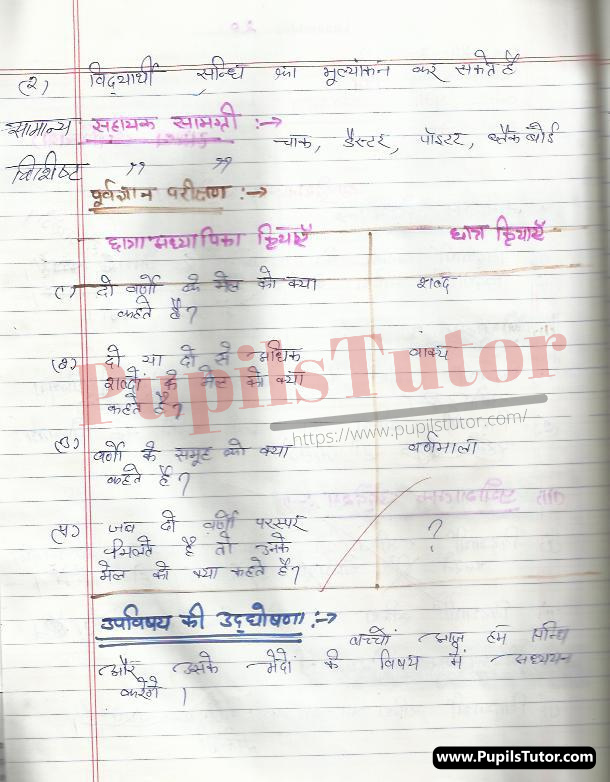 (२) विद्यार्थी सन्धि का मूल्यांकन कर सकते है
सामान्य सहायक सामग्री :→
चाक, डैस्टर, पॉइंटर, ब्लैक बोर्ड
विशिष्ट ,, ,,
पूर्वज्ञान परीक्षण :→
छात्राअध्यापिका क्रियाएँ छात्र क्रियाएँ
(१) दो वर्णो के मेल को क्या शब्द
कहते है?
(२) दो या दो से अधिक वाक्य
शब्दों के मेल को क्या
कहते है?
(३) वर्णो के समूह को क्या वर्णमाला
कहते है?
(४) जब दो वर्णो परस्पर ?
मिलते है तो उनके
मेल को क्या कहते है?
उपविषय की उद्घोषणा :→
बच्चों आज हम सन्धि
और उसके भेदों के विषय में अध्ययन
करेगें ।
PupilsTutor
https://www.pupilstutor.com/
www.PupilsTutor.com